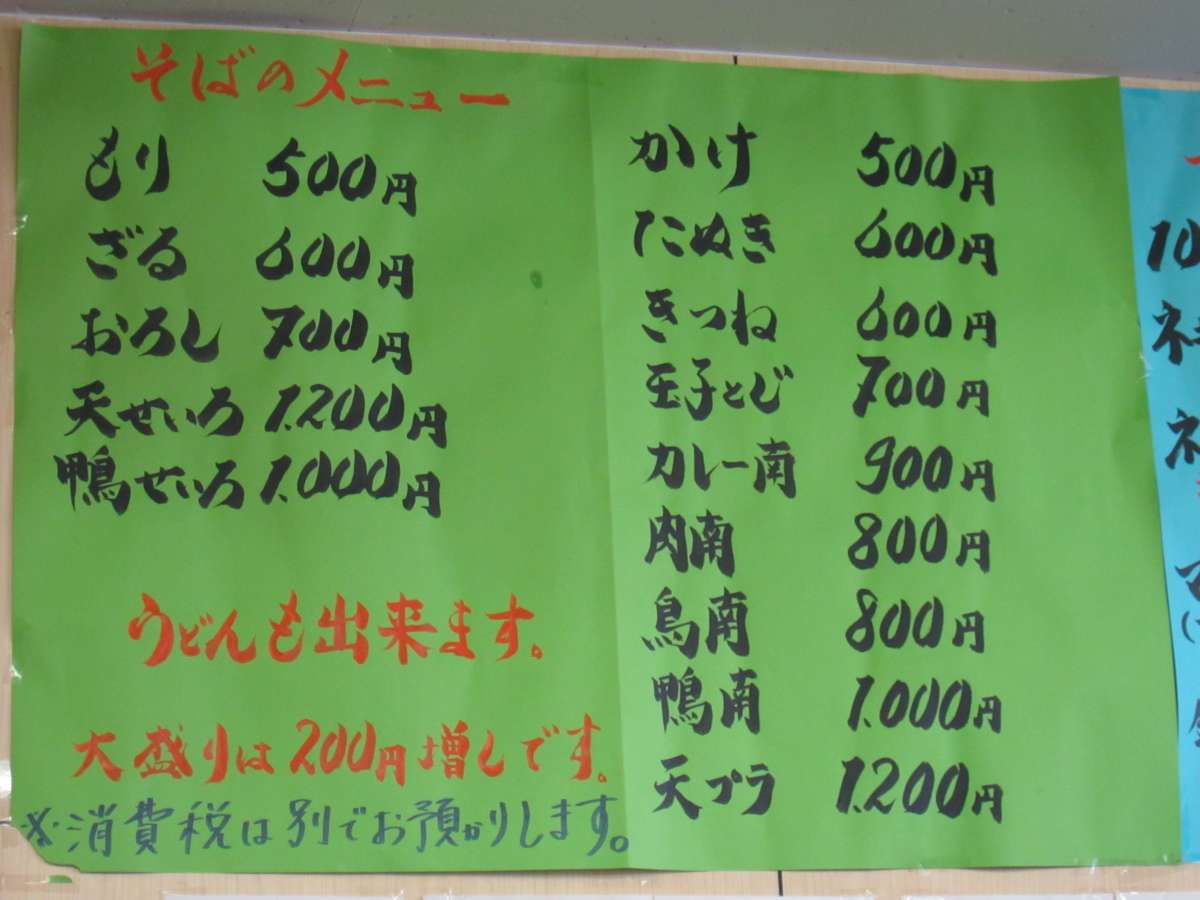 そばのメニュー
もり 500円
ざる 600円
おろし 700円
天せいろ 1.200円
鴨せいろ 1.000円
うどんも出来ます。
大盛りは200円増しです。
※消費税は別でお預かりします。
かけ 500円
たぬき 600円
きつね 600円
玉子とじ 700円
カレー南 900円
肉南 800円
鳥南 800円
鴨南 1.000円
天プラ 1.200円
10